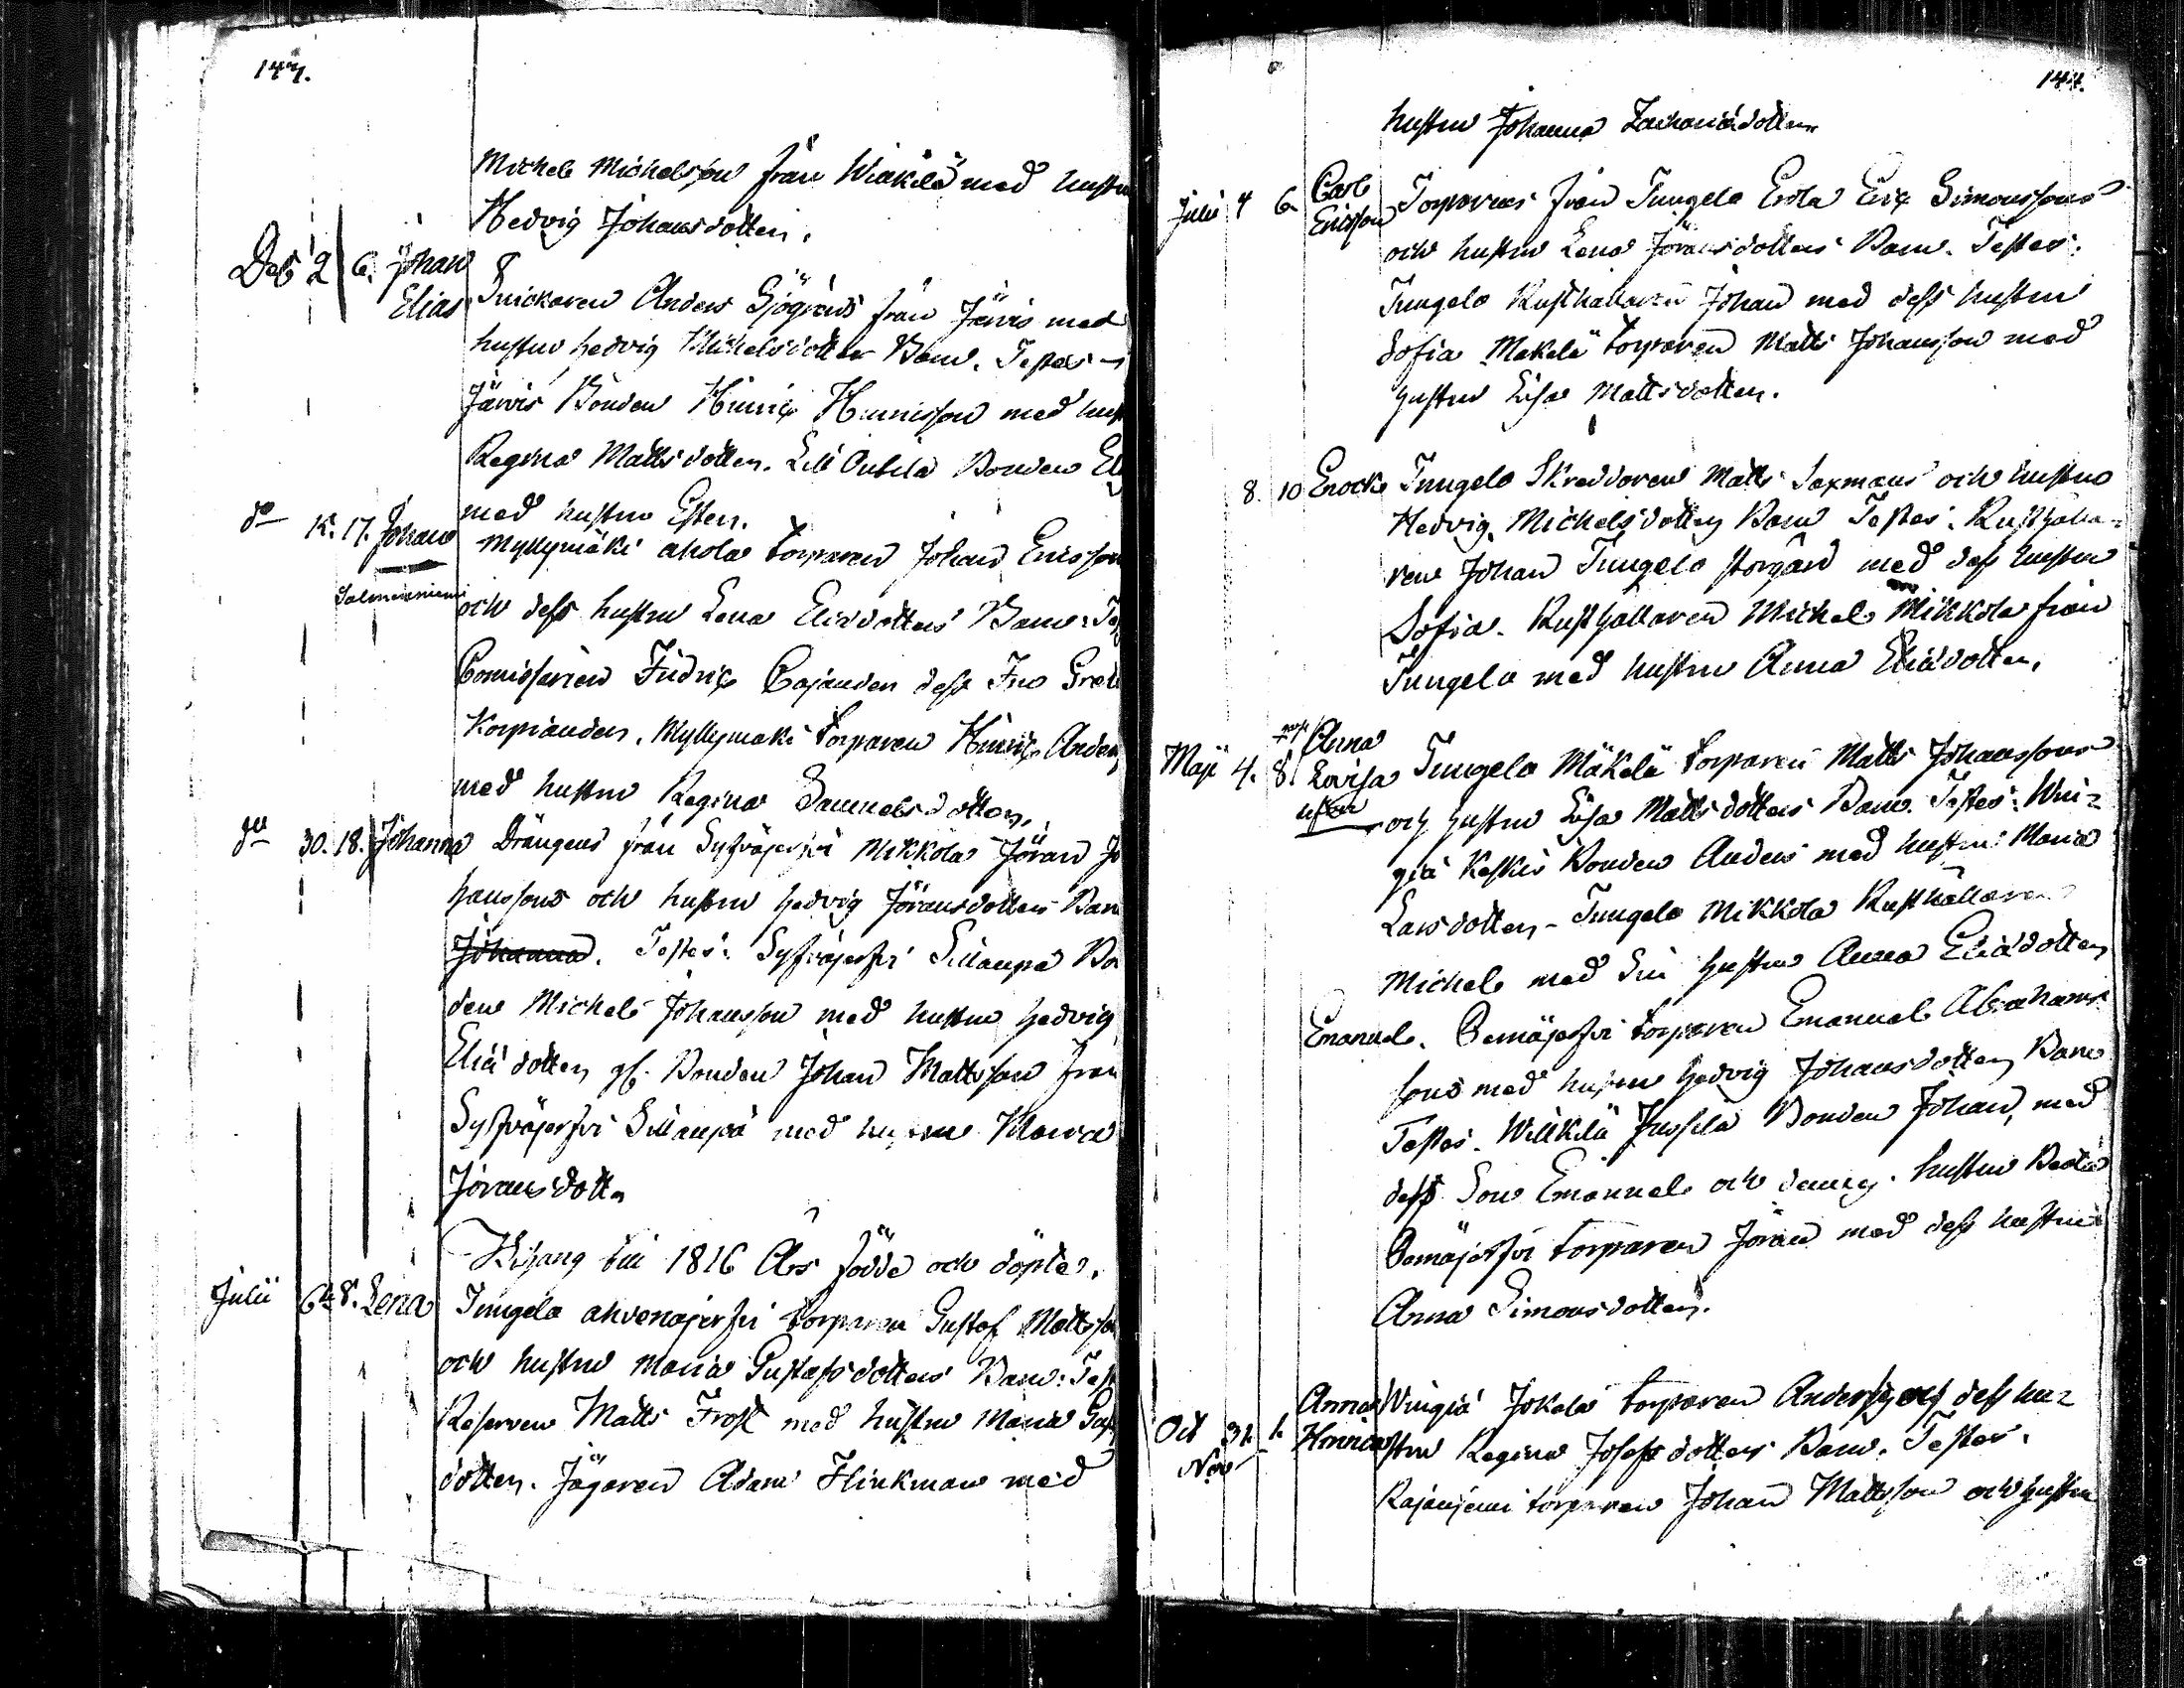 147.
Michel Michelsson från Wiäkilä med hustru
Hedvig Johansdotter.
Deb 2 6. Johan Elias
Snickaren Anders Sjögréns från Järvis med
hustru hedvig Michelsdotter Barn. Testes
Järvis Bonden Hinric Hinricsson med hust
Regina Mattsdotter. Lill Bonden
med hustru Ester.
do 15. 17. Johan
Salmenniemi
Myllymäki ahola torparen Johan Ericsson
och dess hustru Lena Eliædotters Barn: Tes
Comissarien Fridric Cajander dess Fru Gret
Korpiander. Myllymäki torparen Hinric Anders
med hustru Regina Samuelsdotter.
do 30. 18. Johanna
Drängens från Syväjerfvi Mikkola Jöran Jo
hanssons och hustru hedvig Jöransdotters Barn
Johanna. Testes: Syfväjerfvi Sillanpä Bo
den Michel Johansson med hustru hedvig
Eliædotter gl. Bonden Johan Mattsson från
Syfväjerfvi Sillanpää med hustru Maria
Jöransdotter
Bihang till 1816 Års födde och döpte.
Julii 6 8. Lena
Jungela ahvenajerfvi torparen Gustaf Mattsson
och hustru Maria Gustafsdotters Barn: Test
Reserven Matts Frost med hustru Maria Gust
dotter. Jägaren Adam Flinkman med
144.
hustru Johanna Zachariædotter
Julii 4 6. Carl Ericsson
Torparens från Jungela Erola Eric Simonssons
och hustru Lena Jöransdotters Barn. Testes:
Jungela Rusthållaren Johan med dess hustru
Sofia Mäkelä torparen Matts Johansson med
hustru Lisa Mattsdotter.
8. 10 Enock
Jungela Skreddaren Matts Saxmans och hustru
Hedvig Michelsdotter Barn Testes: Rusthålla-
ren Johan Jungela storgård med dess hustru
Sofia. Rusthållaren Michel Mikkola från
Jungela med hustru Anna Eliædotter.
Maji 4. 8. Anna Lovisa
Jungela Mäkelä torparen Matts Johanssons
och hustru Lisa Mattsdotters Barn. Testes: Win-
giä Keskis Bonden Anders med hustru: Maria
Larsdotter - Jungela Mikkola Rusthållaren
Michel med sin hustru Anna Eliædotter
Emanuel. Oemäjerfvi torparen Emanuel Abrahams
sons med hustru hedvig Johansdotter Barn
Testes. Willkilä Jussila Bonden Johan, med
dess Son Emanuel och hustru Beata
Oemäjerfvi torparen Jöran med dess hustru
Anna Simonsdotter.
Oct 31 1. Nov Anna Henrica
Wingiä Jokela torparen Anders och dess hu-
stru Regina Josefsdotters Barn. Testes.
Rajaniemi torparen Johan Mattsson och hustru